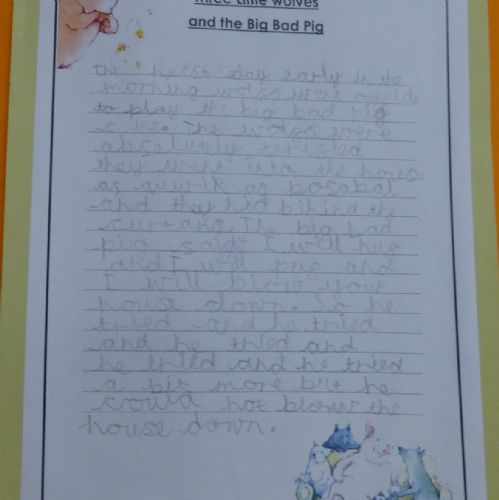 Three Little Wolves
and the Big Bad Pig
the next day early in the
morning wolss went outside
to play the big bad pig
came. The wolss were
absolutely
they went into the house
as quwik as posabol
and they hid bihind the
curtans. The big bad
pig said I will huf
and I will puf and
I will blow your
house down. So he
tried and he tried
and he tried and
he tried and he tried
a bit more but he
could not blow the
house down.